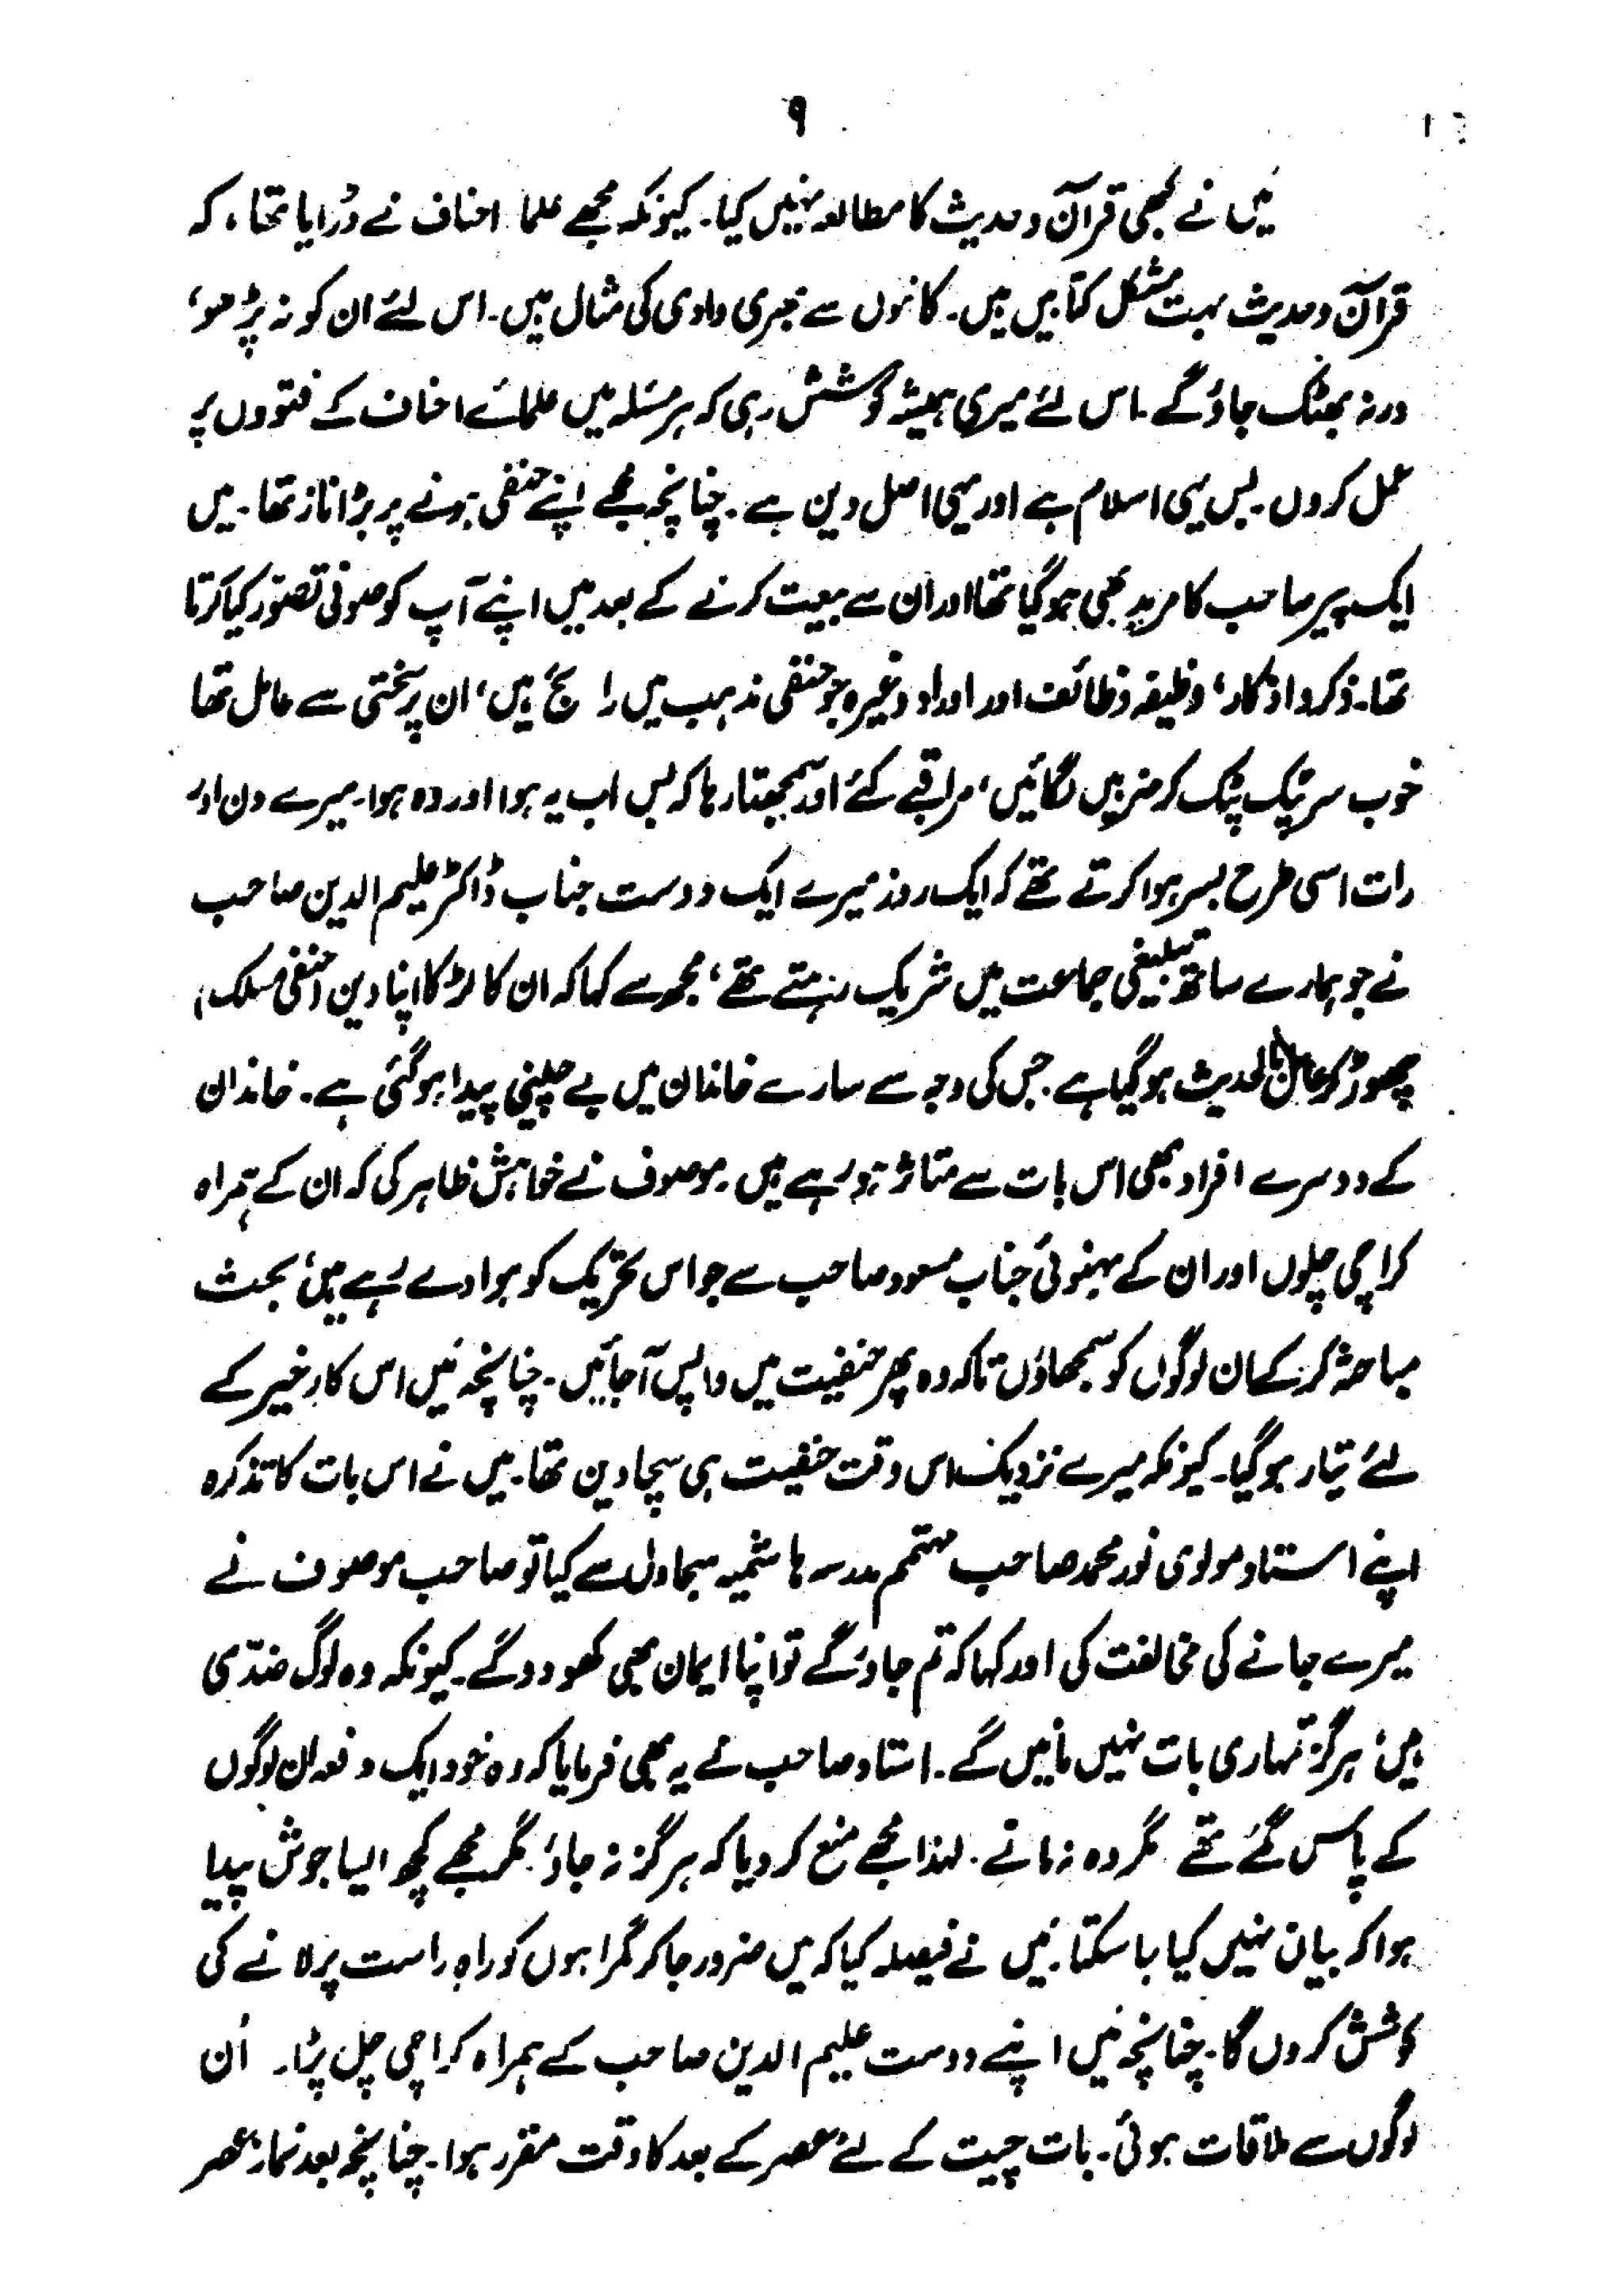 ۹
میں نے کبھی قرآن و حدیث کا مطالعہ نہیں کیا۔ کیونکہ مجھے علما احناف نے ڈرایا تھا، کہ
قرآن و حدیث بہت مشکل کتابیں ہیں۔ کانٹوں سے بھری وادی کی مثال ہیں۔ اس لئے ان کو نہ پڑھو،
ورنہ بھٹک جاؤ گے۔ اس لئے میری ہمیشہ کوشش رہی کہ ہر مسئلہ میں علمائے احناف کے فتووں پر
عمل کروں۔ بس یہی اسلام ہے اور یہی اصل دین ہے۔ چنانچہ مجھے اپنے حنفی ہونے پر بڑا ناز تھا۔ میں
ایک پیر صاحب کا مرید بھی ہو گیا تھا اور ان سے بیعت کرنے کے بعد میں اپنے آپ کو صوفی تصوّر کیا کرتا
تھا۔ ذکر و اذکار، وظیفہ وظائف اور اوراد وغیرہ جو حنفی مذہب میں رائج ہیں، ان پر سختی سے عامل تھا
خوب سر پٹک پٹک کر ضربیں لگائیں، مراقبے کئے اور سمجھتا رہا کہ بس اب یہ ہوا اور وہ ہوا۔ میرے دن اور
رات اسی طرح بسر ہوا کرتے تھے کہ ایک روز میرے ایک دوست جناب ڈاکٹر علیم الدین صاحب
نے جو ہمارے ساتھ تبلیغی جماعت میں شریک رہتے تھے، مجھ سے کہا کہ ان کا لڑکا اپنا دین (حنفی مسلک)
چھوڑ کر عامل بالحدیث ہو گیا ہے۔ جس کی وجہ سے سارے خاندان میں بے چینی پیدا ہو گئی ہے۔ خاندان
کے دوسرے افراد بھی اس بات سے متاثر ہو رہے ہیں۔ موصوف نے خواہش ظاہر کی کہ ان کے ہمراہ
کراچی چلوں اور ان کے بہنوئی جناب مسعود صاحب سے جو اس تحریک کو ہوا دے رہے ہیں، بحث
مباحثہ کر کے ان لوگوں کو سمجھاؤں تاکہ وہ پھر حنفیت میں واپس آجائیں۔ چنانچہ میں اس کارِ خیر کے
لئے تیار ہو گیا۔ کیونکہ میرے نزدیک اس وقت حنفیت ہی سچا دین تھا۔ میں نے اس بات کا تذکرہ
اپنے استاد مولوی نور محمد صاحب مہتمم مدرسہ ہاشمیہ سجاول سے کیا تو صاحب موصوف نے
میرے جانے کی مخالفت کی اور کہا کہ تم جاؤ گے تو اپنا ایمان بھی کھو دو گے۔ کیونکہ وہ لوگ ضدّی
ہیں، ہرگز تمہاری بات نہیں مانیں گے۔ استاد صاحب نے یہ بھی فرمایا کہ وہ خود ایک دفعہ ان لوگوں
کے پاس گئے تھے مگر وہ نہ مانے۔ لہٰذا مجھے منع کر دیا کہ ہرگز نہ جاؤ۔ مگر مجھے کچھ ایسا جوش پیدا
ہوا کہ بیان نہیں کیا جا سکتا۔ میں نے فیصلہ کیا کہ میں ضرور جا کر گمراہوں کو راہِ راست پر لانے کی
کوشش کروں گا۔ چنانچہ میں اپنے دوست علیم الدین صاحب کے ہمراہ کراچی چل پڑا۔ اُن
لوگوں سے ملاقات ہوئی۔ بات چیت کے لئے عصر کے بعد کا وقت مقرر ہوا۔ چنانچہ بعد نماز عصر